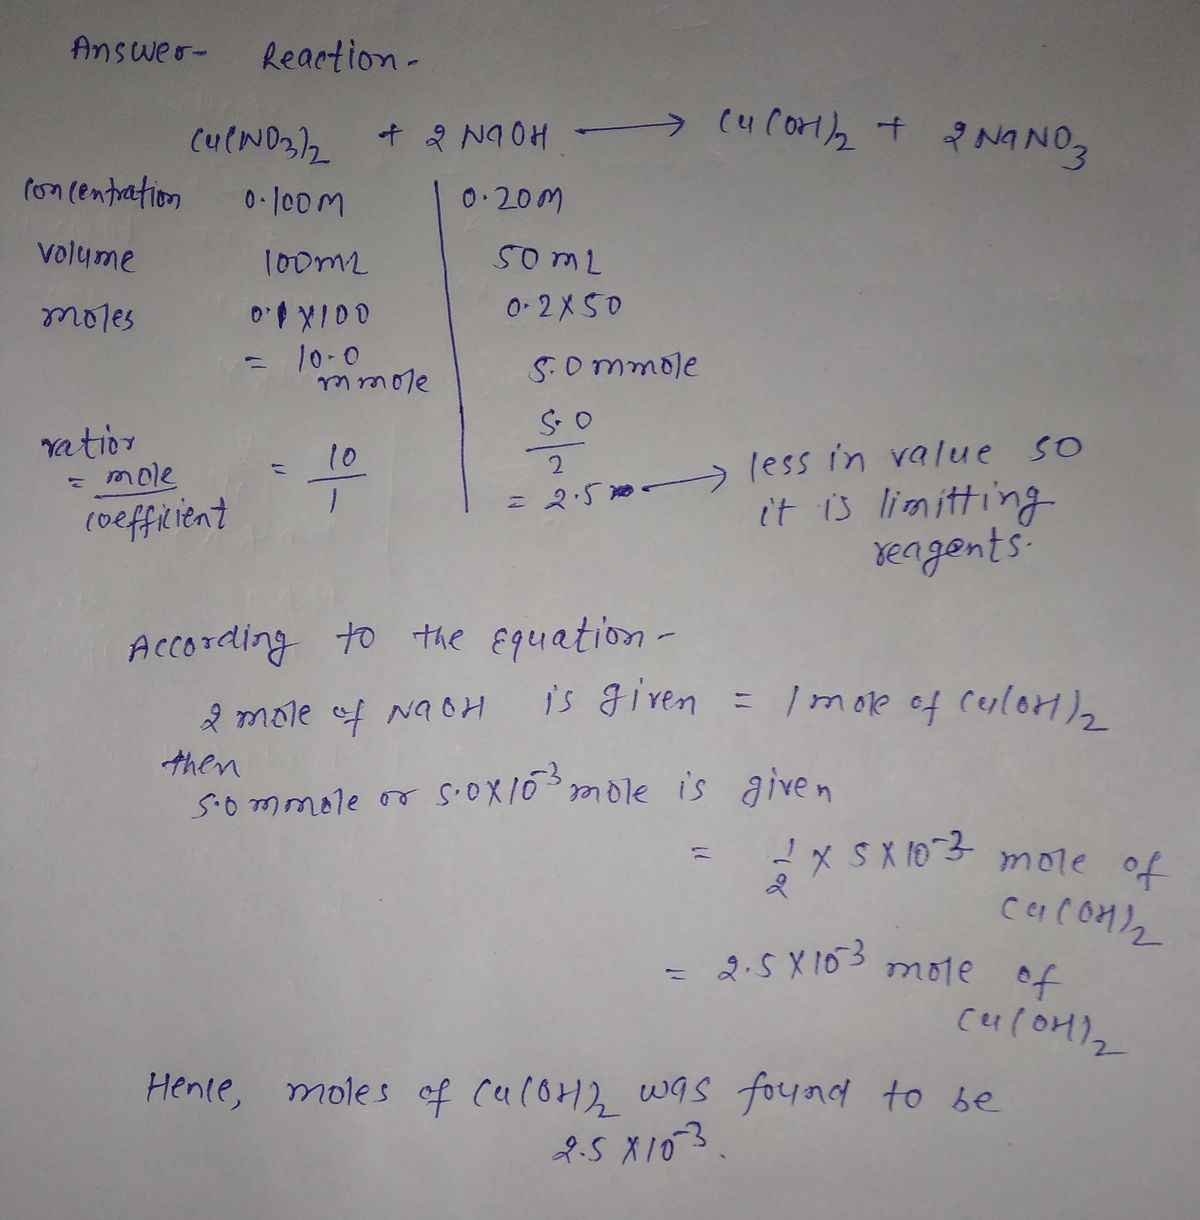 Answer- Reaction-
Cu(NO3)2 + 2 NaOH ⟶ Cu(OH)2 + 2 NaNO3
concentration 0.100M 0.20M
volume 100mL 50mL
moles 0.1X100 0.2X50
= 10.0 mmole 5.0 mmole
ratior = mole/coefficient = 10/1 5.0/2
= 2.5 ⟶ less in value so
it is limitting
reagents.
According to the Equation-
2 mole of NaOH is given = 1 mole of Cu(OH)2
then
5.0 mmole or 5.0X10^-3 mole is given
= 1/2 X 5X10^-3 mole of
Cu(OH)2
= 2.5X10^-3 mole of
Cu(OH)2
Hence, moles of Cu(OH)2 was found to be
2.5X10^-3.